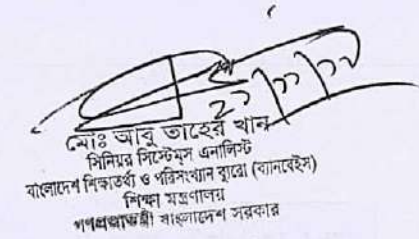 মোঃ আবু তাহের খান
সিনিয়র সিস্টেমস্ এনালিস্ট
বাংলাদেশ শিক্ষাতথ্য ও পরিসংখ্যান ব্যুরো (ব্যানবেইস)
শিক্ষা মন্ত্রণালয়
গণপ্রজাতন্ত্রী বাংলাদেশ সরকার